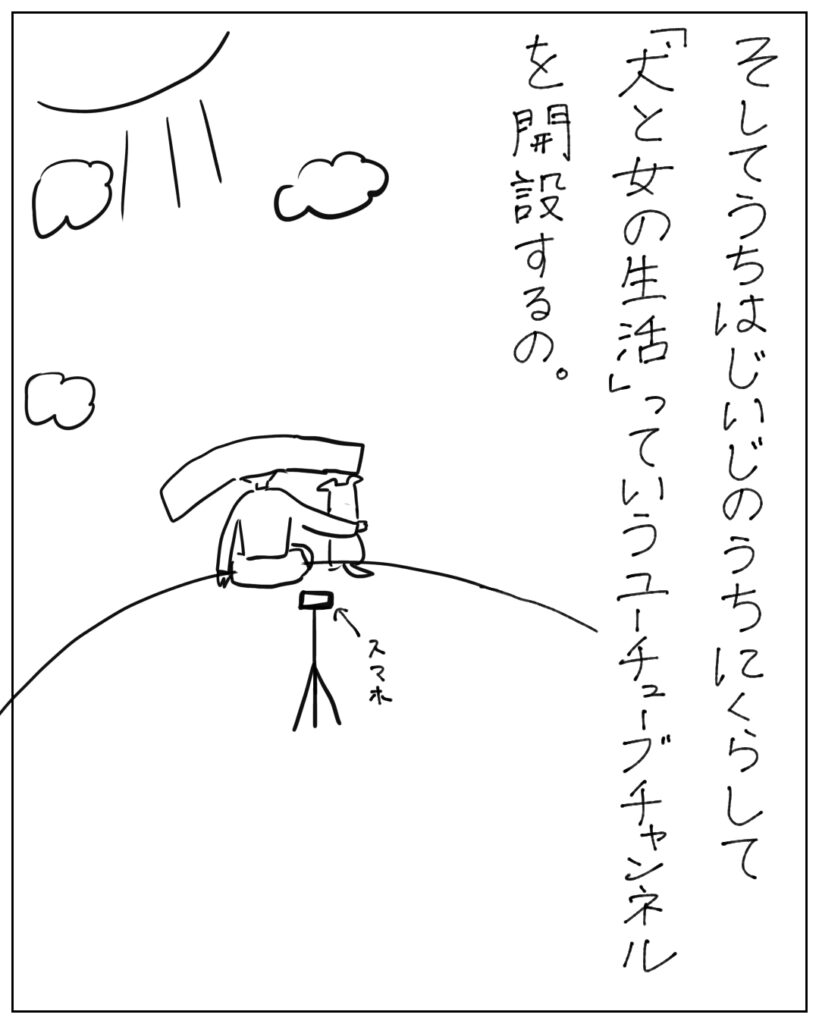 そしてうちはじいじのうちにくらして
「犬と女の生活」っていうユーチューブチャンネル
を開設するの。
スマホ